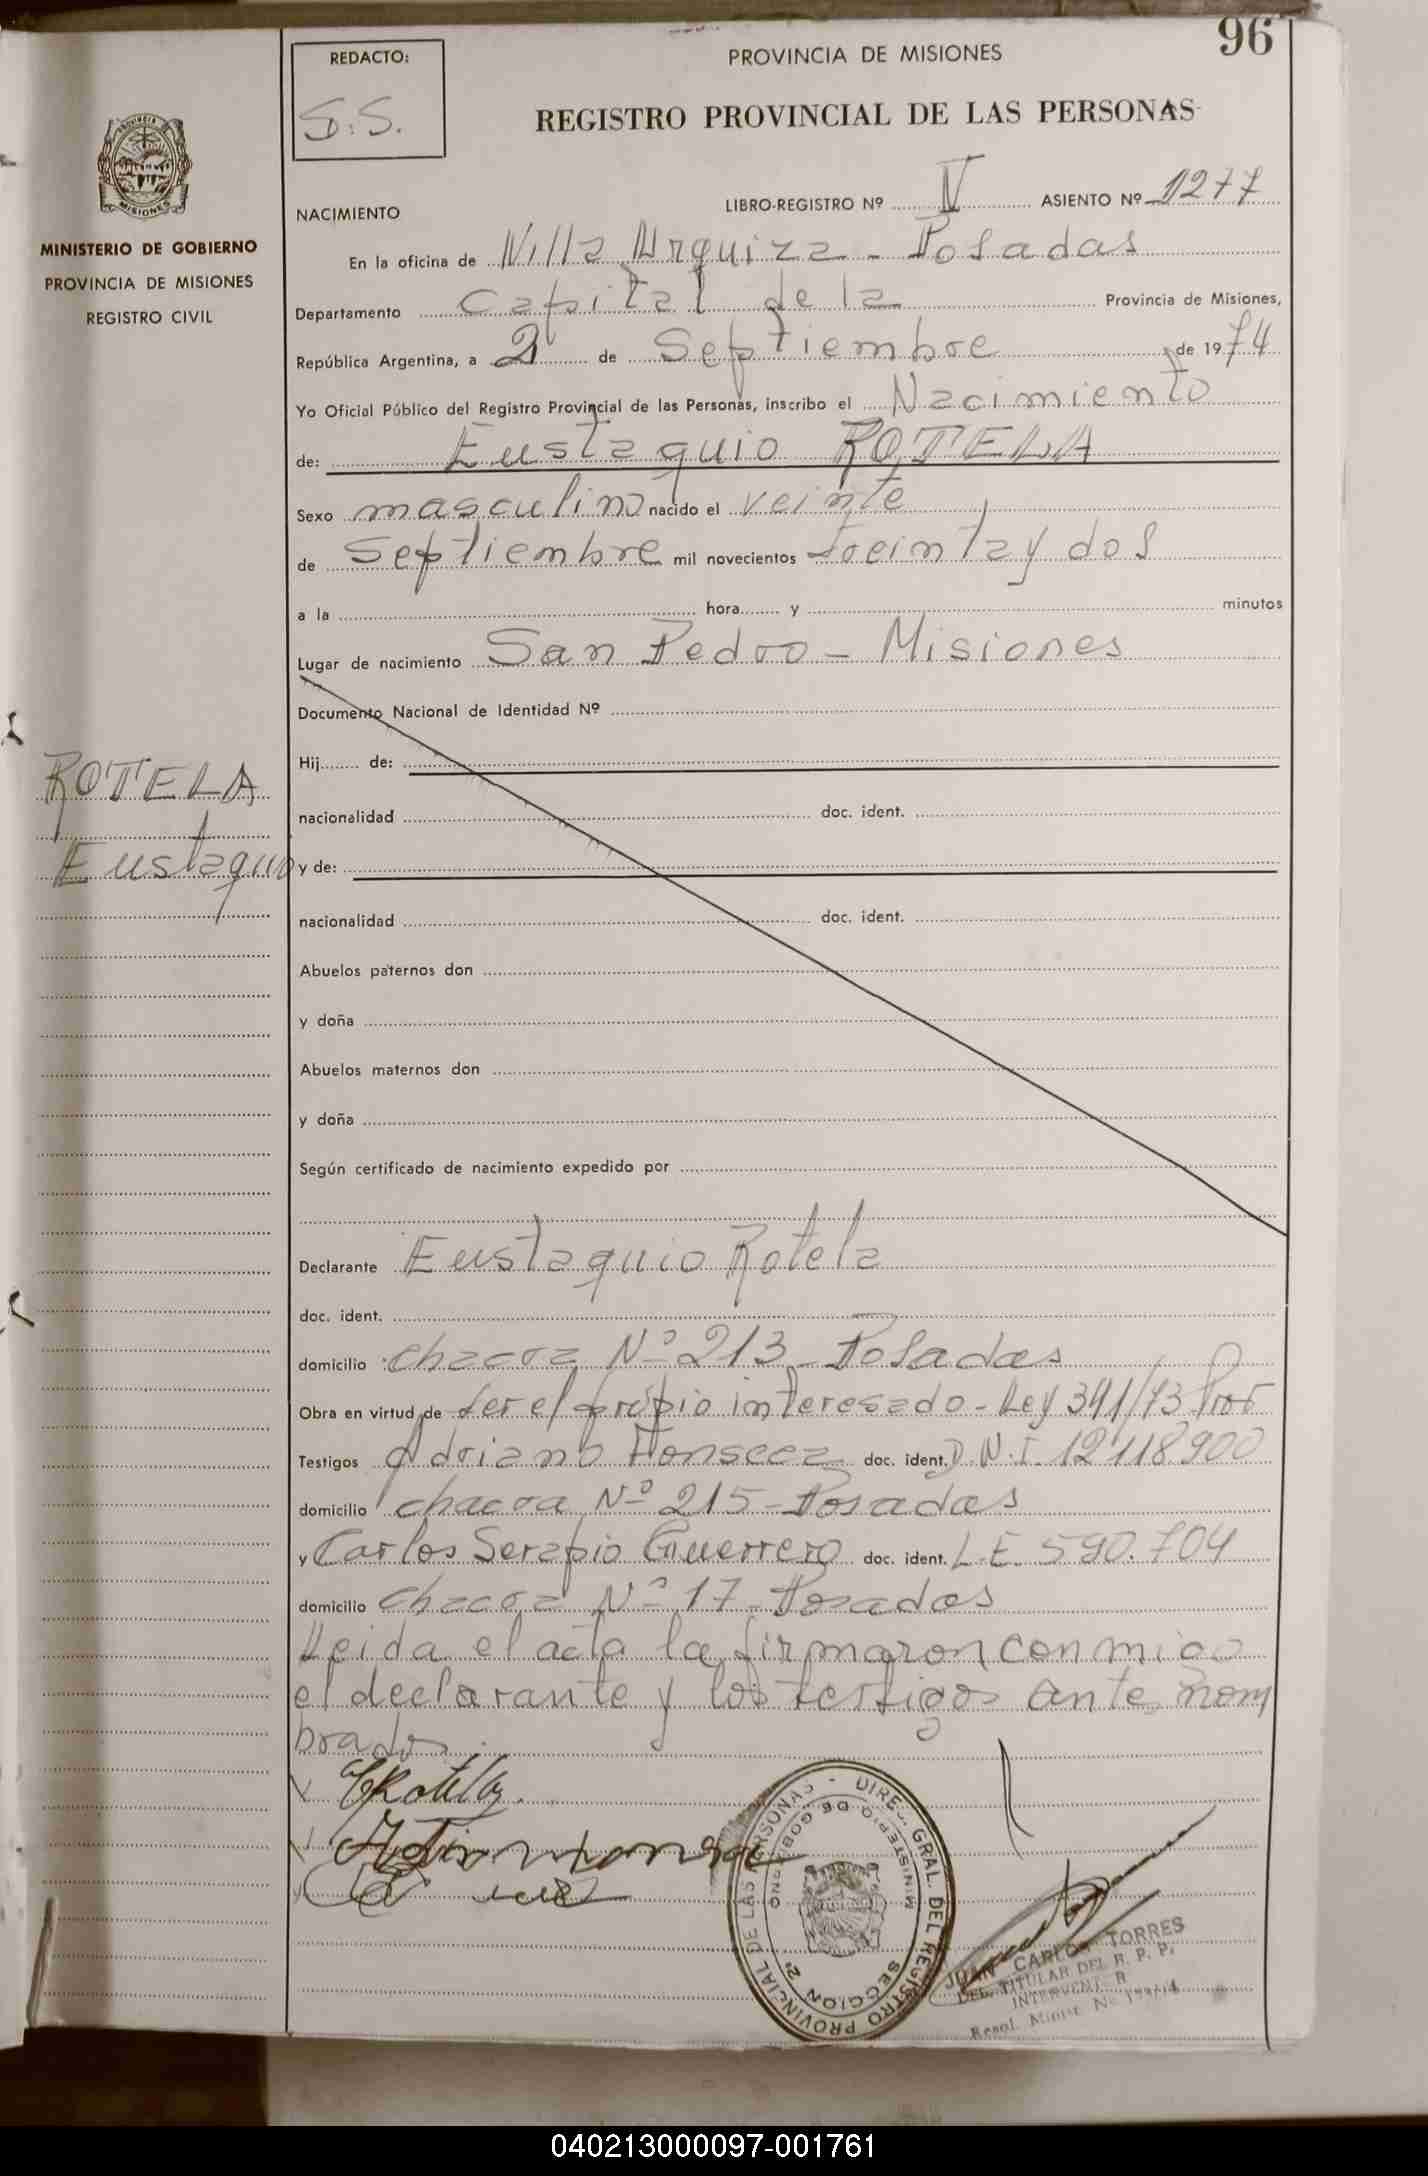 96
REDACTO:
S.S.
PROVINCIA DE MISIONES
REGISTRO PROVINCIAL DE LAS PERSONAS
MINISTERIO DE GOBIERNO
PROVINCIA DE MISIONES
REGISTRO CIVIL
NACIMIENTO
LIBRO-REGISTRO Nº IV ASIENTO Nº 1277
En la oficina de Villa Urquiza - Posadas
Departamento Capital de la Provincia de Misiones,
República Argentina, a 2 de Septiembre de 1974
Yo Oficial Público del Registro Provincial de las Personas, inscribo el Nacimiento
de: Eustaquio ROTELA
Sexo masculino nacido el veinte
de Septiembre mil novecientos treinta y dos
a la hora y minutos
Lugar de nacimiento San Pedro - Misiones
Documento Nacional de Identidad Nº
Hij de:
ROTELA
Eustaquio
nacionalidad doc. ident.
y de:
nacionalidad doc. ident.
Abuelos paternos don
y doña
Abuelos maternos don
y doña
Según certificado de nacimiento expedido por
Declarante Eustaquio Rotela
doc. ident.
domicilio chacra Nº 213 - Posadas
Obra en virtud de ser el propio interesado - Ley 391/73
Testigos Adriano Fonseca doc. ident. D.N.I. 12118900
domicilio chacra Nº 215 - Posadas
y Carlos Serapio Guerrero doc. ident. L.E. 590.704
domicilio Chacra Nº 17 - Posadas
Leida el acta la firmaron conmigo
el declarante y los testigos ante nom
brados.
ERotela
DIREC. GRAL. DEL REGISTRO PROVINCIAL DE LAS PERSONAS -
MINISTERIO DE GOBIERNO
SECCION 2ª
JUAN CARLOS TORRES
DEL. TITULAR DEL R. P. P.
Resol. Minist. Nº
040213000097-001761